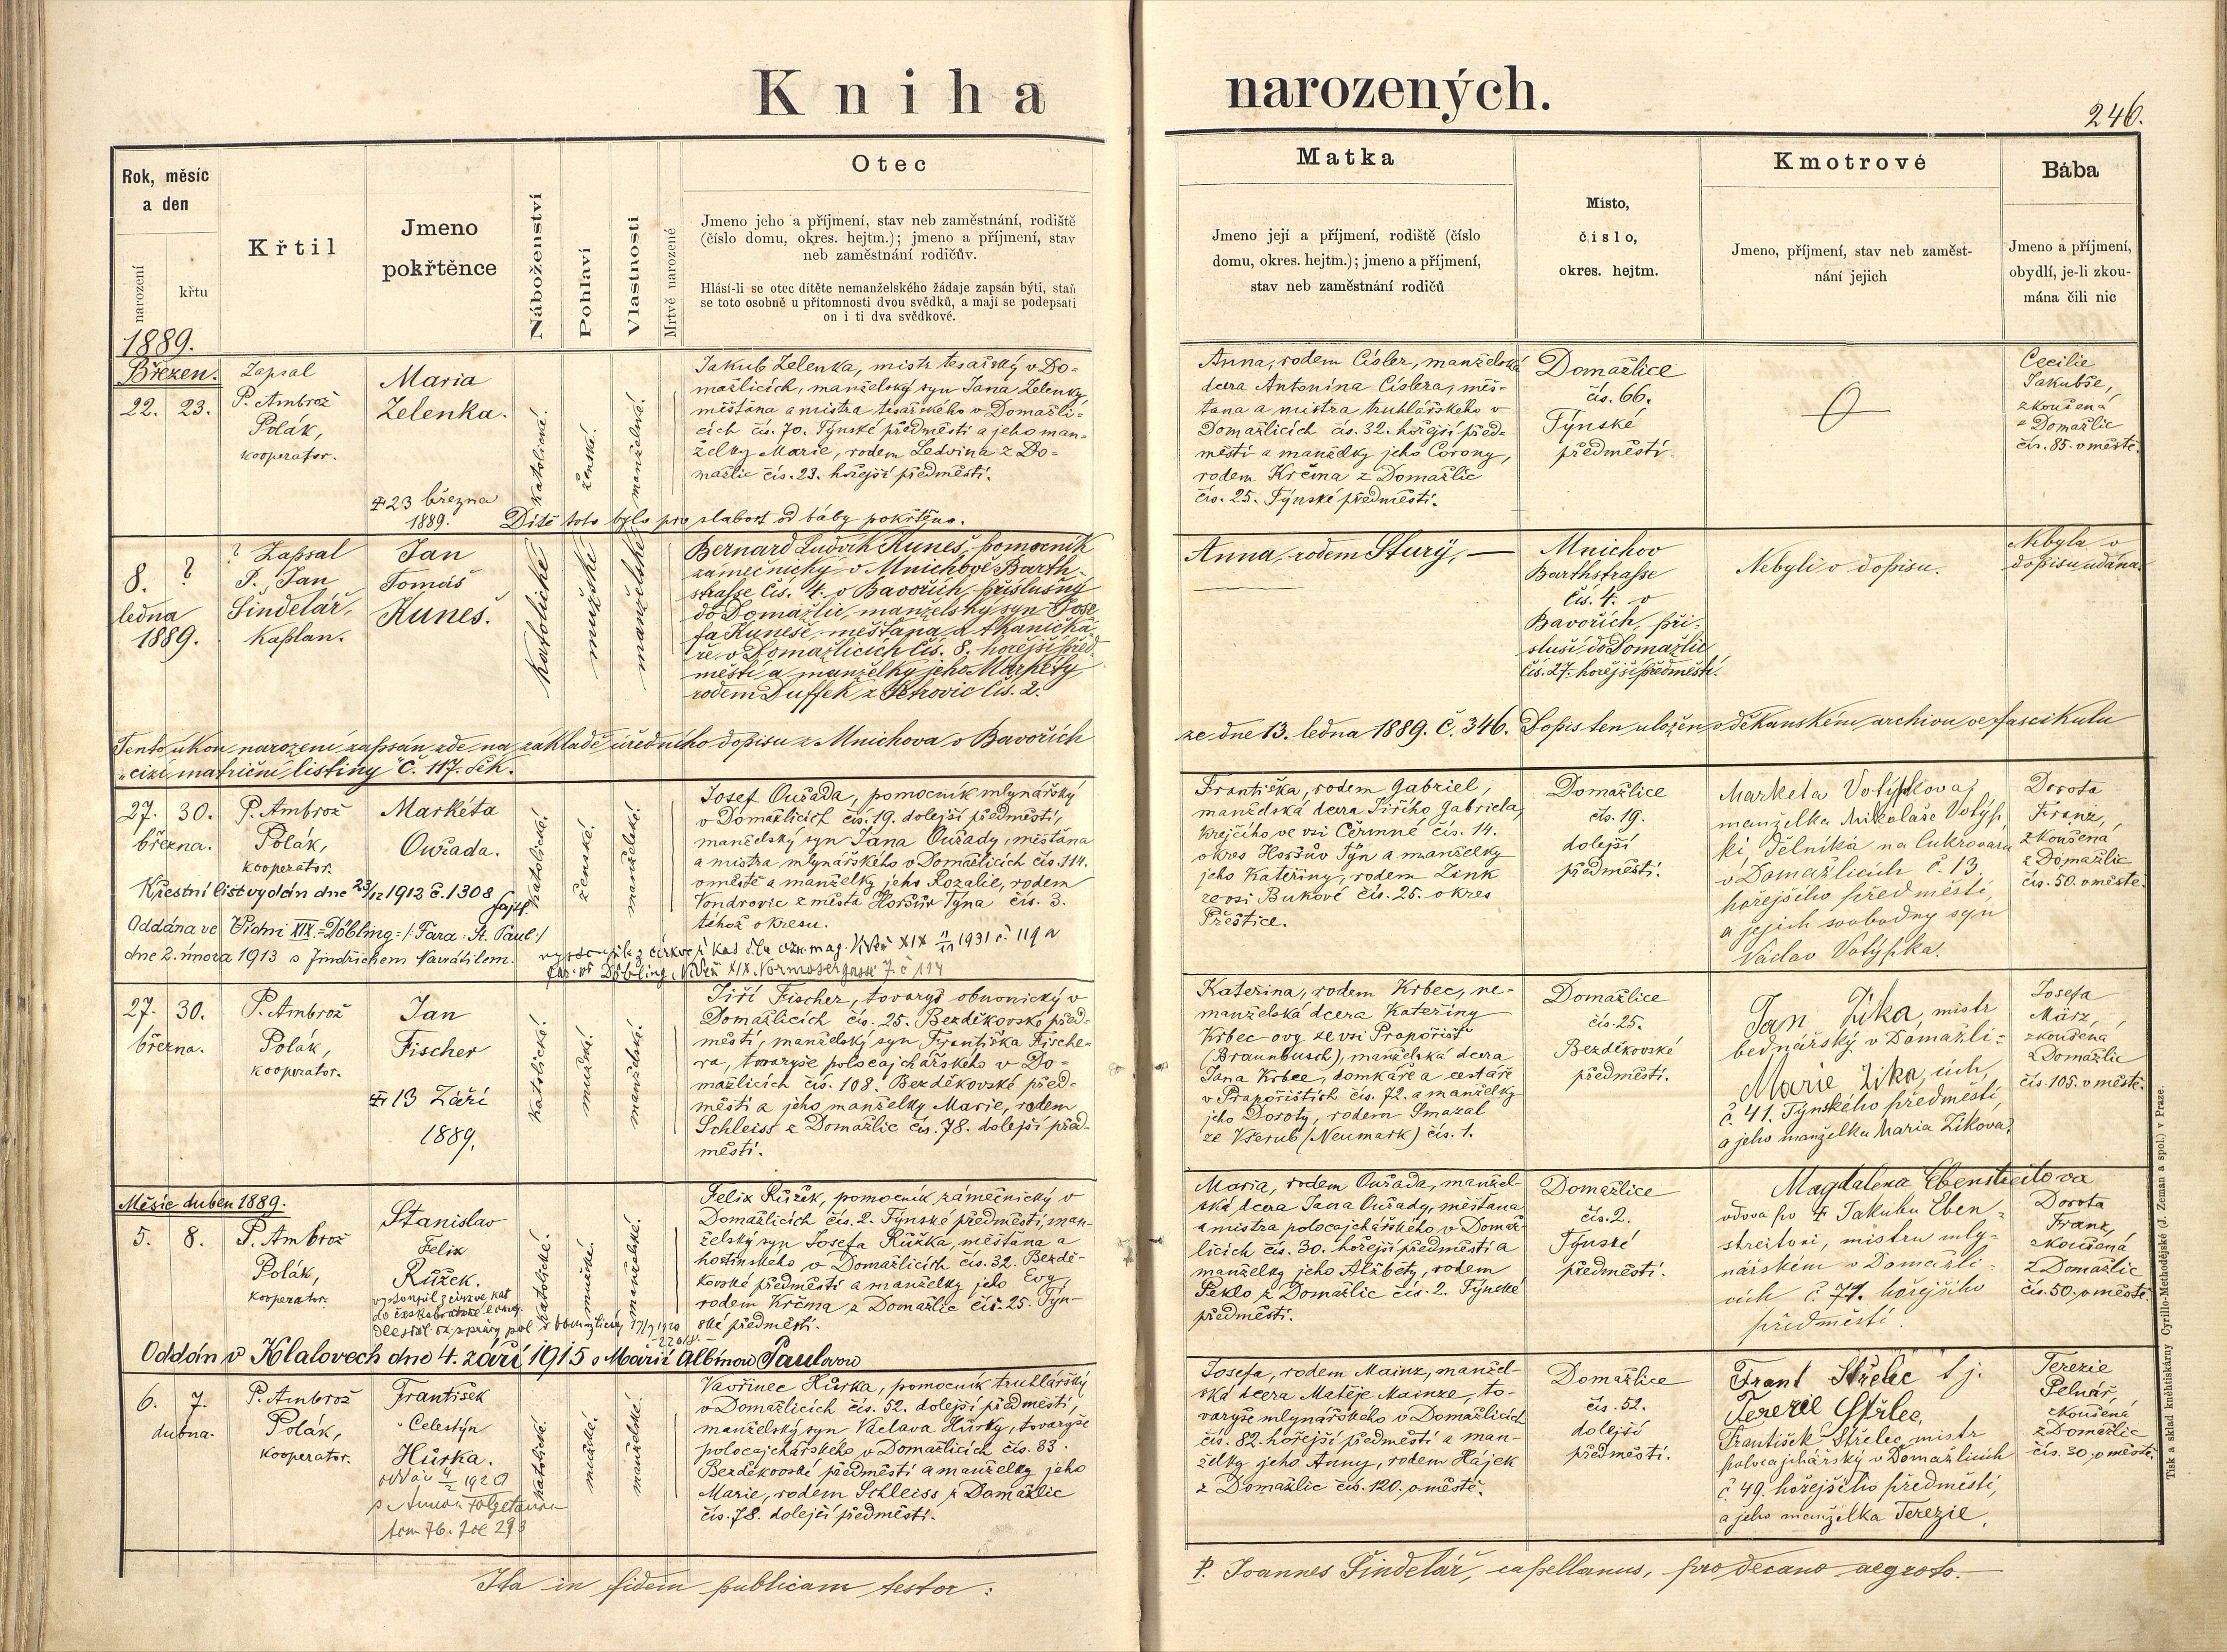 Kniha narozených.
246.
Rok, měsíc
a den
narození
křtu
Křtil
Jmeno
pokřtěnce
Náboženství
Pohlaví
Vlastnosti
Mrtvě narozené
Otec
Jmeno jeho a příjmení, stav neb zaměstnání, rodiště
(číslo domu, okres. hejtm.); jmeno a příjmení, stav
neb zaměstnání rodičův.
Hlásí-li se otec dítěte nemanželského žádaje zapsán býti, staň
se toto osobně u přítomnosti dvou svědků, a mají se podepsati
on i ti dva svědkové.
Matka
Jmeno její a příjmení, rodiště (číslo
domu, okres. hejtm.); jmeno a příjmení,
stav neb zaměstnání rodičů
Misto,
číslo,
okres. hejtm.
Kmotrové
Jmeno, příjmení, stav neb zaměst-
nání jejich
Bába
Jmeno a příjmení,
obydlí, je-li zkou-
mána čili nic
1889.
Březen.
22. 23.
Zapsal
P. Ambrož
Polák,
kooperator.
Maria
Zelenka.
23 března
1889.
katolická.
ženská.
manželská.
Jakub Zelenka, mistr tesařský v Do-
mažlicích, manželský syn Jana Zelenky,
měšťana a mistra tesařského v Domažli-
cích čís. 70. Týnské předměstí a jeho man-
želky Marie, rodem Ledvina z Do-
mažlic čís. 23. hořejší předměstí.
Dítě toto bylo pro slabost od báby pokřtěno.
Anna, rodem Císler, manželská
dcera Antonína Císlera, měš-
ťana a mistra truhlářského v
Domažlicích čís. 32. hořejší před-
městí a manželky jeho Corony,
rodem Krčma z Domažlic
čís. 25. Týnské předměstí.
Domažlice
čís. 66.
Týnské
předměstí
Cecilie
Jakubše,
zkoušená
z Domažlic
čís. 85. v městě.
8. ?
ledna
1889.
? Zapsal
P. Jan
Šindelář,
kaplan.
Jan
Tomáš
Kuneš.
katolické
mužské
manželské
Bernard Ludvík Kuneš, pomocník
zámečnický v Mnichově Barth-
strasse čís. 4. v Bavořích, příslušný
do Domažlic, manželský syn Jose-
fa Kuneše, měšťana a tkanička-
ře v Domažlicích čís. 8. hořejší před-
městí a manželky jeho Markéty
rodem Duffek z Petrovic čís. 2.
Anna, rodem Sturÿ, —
Mnichov
Barthstrasse
čís. 4. v
Bavořích, pří-
sluší do Domažlic
čís. 27. hořejší předměstí.
Nebyli v dopisu.
Nebyla v
dopisu udána.
Tento úkon narození zapsán zde na základě úředního dopisu z Mnichova v Bavořích
ze dne 13. ledna 1889. č. 346. Dopis ten uložen v děkanském archivu ve fascikulu
"cizí matriční listiny" č. 117. děk.
27. 30.
března.
P. Ambrož
Polák,
kooperator.
Markéta
Ouřada.
Křestní list vydán dne 23/12 1912 č. 1308
Oddána ve Vídni XIX. Döbling /: Fara: St. Paul :/
dne 2. února 1913 s Jindřichem Navrátilem.
katolická.
ženská.
manželská.
Josef Ouřada, pomocník mlynářský
v Domažlicích čís. 19. dolejší předměstí,
manželský syn Jana Ouřady, měšťana
a mistra mlynářského v Domažlicích čís. 114.
v městě a manželky jeho Rozalie, rodem
Vondrovic z města Horšův Týna čís. 3.
téhož okresu.
Františka, rodem Gabriel,
manželská dcera Jiřího Gabriela,
krejčího ve vsi Čermné čís. 14.
okres Horšův Týn a manželky
jeho Kateřiny, rodem Zink
ze vsi Bukové čís. 25. okres
Přeštice.
Domažlice
čís. 19.
dolejší
předměstí.
Marketa Votýpková
manželka Mikoláše Votýp-
ki, dělníka na cukrovaru
v Domažlicích č. 13
hořejšího předměstí,
a jejich svobodný syn
Václav Votýpka.
Dorota
Franz,
zkoušená
z Domažlic
čís. 50. v městě.
27. 30.
března.
P. Ambrož
Polák,
kooperator.
Jan
Fischer
13 Září
1889.
katolické.
mužské.
manželské.
Jiří Fischer, tovaryš obuvnický v
Domažlicích čís. 25. Bezděkovské před-
městí, manželský syn Františka Fische-
ra, tovaryše polocajchářského v Do-
mažlicích čís. 108. Bezděkovské před-
městí a jeho manželky Marie, rodem
Schleiss z Domažlic čís. 78. dolejší před-
městí.
Kateřina, rodem Krbec, ne-
manželská dcera Kateřiny
Krbec-ovy ze vsi Prapořišť
(Braunbusch), manželská dcera
Jana Krbce, domkáře a cestáře
v Prapořištích čís. 72. a manželky
jeho Doroty, rodem Smazal
ze Všerub (Neumark) čís. 1.
Domažlice
čís. 25.
Bezděkovské
předměstí.
Jan Zíka, mistr
bednářský v Domažli-
Marie Zika, cích,
č. 41. Týnského předměstí,
a jeho manželka Maria Zíková.
Josefa
März,
zkoušená
z Domažlic
čís. 105. v městě.
Měsíc duben 1889.
5. 8.
P. Ambrož
Polák,
kooperator.
Stanislav
Felix
Růžek.
Oddán v Klatovech dne 4. září 1915 s Marií Albínou Paulovou
katolické.
mužské.
manželské.
Felix Růžek, pomocník zámečnický v
Domažlicích čís. 2. Týnské předměstí, man-
želský syn Josefa Růžka, měšťana a
hostinského v Domažlicích čís. 32. Bezdě-
kovské předměstí a manželky jeho Evy,
rodem Krčma z Domažlic čís. 25. Týn-
ské předměstí.
Maria, rodem Ouřada, manžel-
ská dcera Jana Ouřady, měšťana
a mistra polocajchářského v Domaž-
licích čís. 30. hořejší předměstí a
manželky jeho Alžběty, rodem
Peklo z Domažlic čís. 2. Týnské
předměstí.
Domažlice
čís. 2.
Týnské
předměstí.
Magdalena Ebenstreitova
vdova po Jakubu Eben-
streitovi, mistru mly-
nářském v Domažli-
cích č. 71. hořejšího
předměstí.
Dorota
Franz,
zkoušená
z Domažlic
čís. 50. v městě.
6. 7.
dubna.
P. Ambrož
Polák,
kooperator.
František
Celestýn
Hůrka.
katolické.
mužské.
manželské.
Vavřinec Hůrka, pomocník truhlářský
v Domažlicích čís. 52. dolejší předměstí,
manželský syn Václava Hůrky, tovaryše
polocajchářského v Domažlicích čís. 83.
Bezděkovské předměstí a manželky jeho
Marie, rodem Schleiss z Domažlic
čís. 78. dolejší předměstí.
Josefa, rodem Mainz, manžel-
ská dcera Matěje Mainze, to-
varyše mlynářského v Domažlicích
čís. 82. hořejší předměstí a man-
želky jeho Anny, rodem Hájek
z Domažlic čís. 120. v městě.
Domažlice
čís. 52.
dolejší
předměstí.
Frant Střelec
Terezie Střlec,
František Střelec, mistr
polocajchářský v Domažlicích
č. 49. hořejšího předměstí,
a jeho manželka Terezie.
Terezie
Pelnář
zkoušená
z Domažlic
čís. 30. v městě.
Ita in fidem publicam testor:
P. Joannes Šindelář, capellanus, pro decano aegroto.
Tisk a sklad knihtiskárny Cyrillo-Methodějské (J. Zeman a spol.) v Praze.